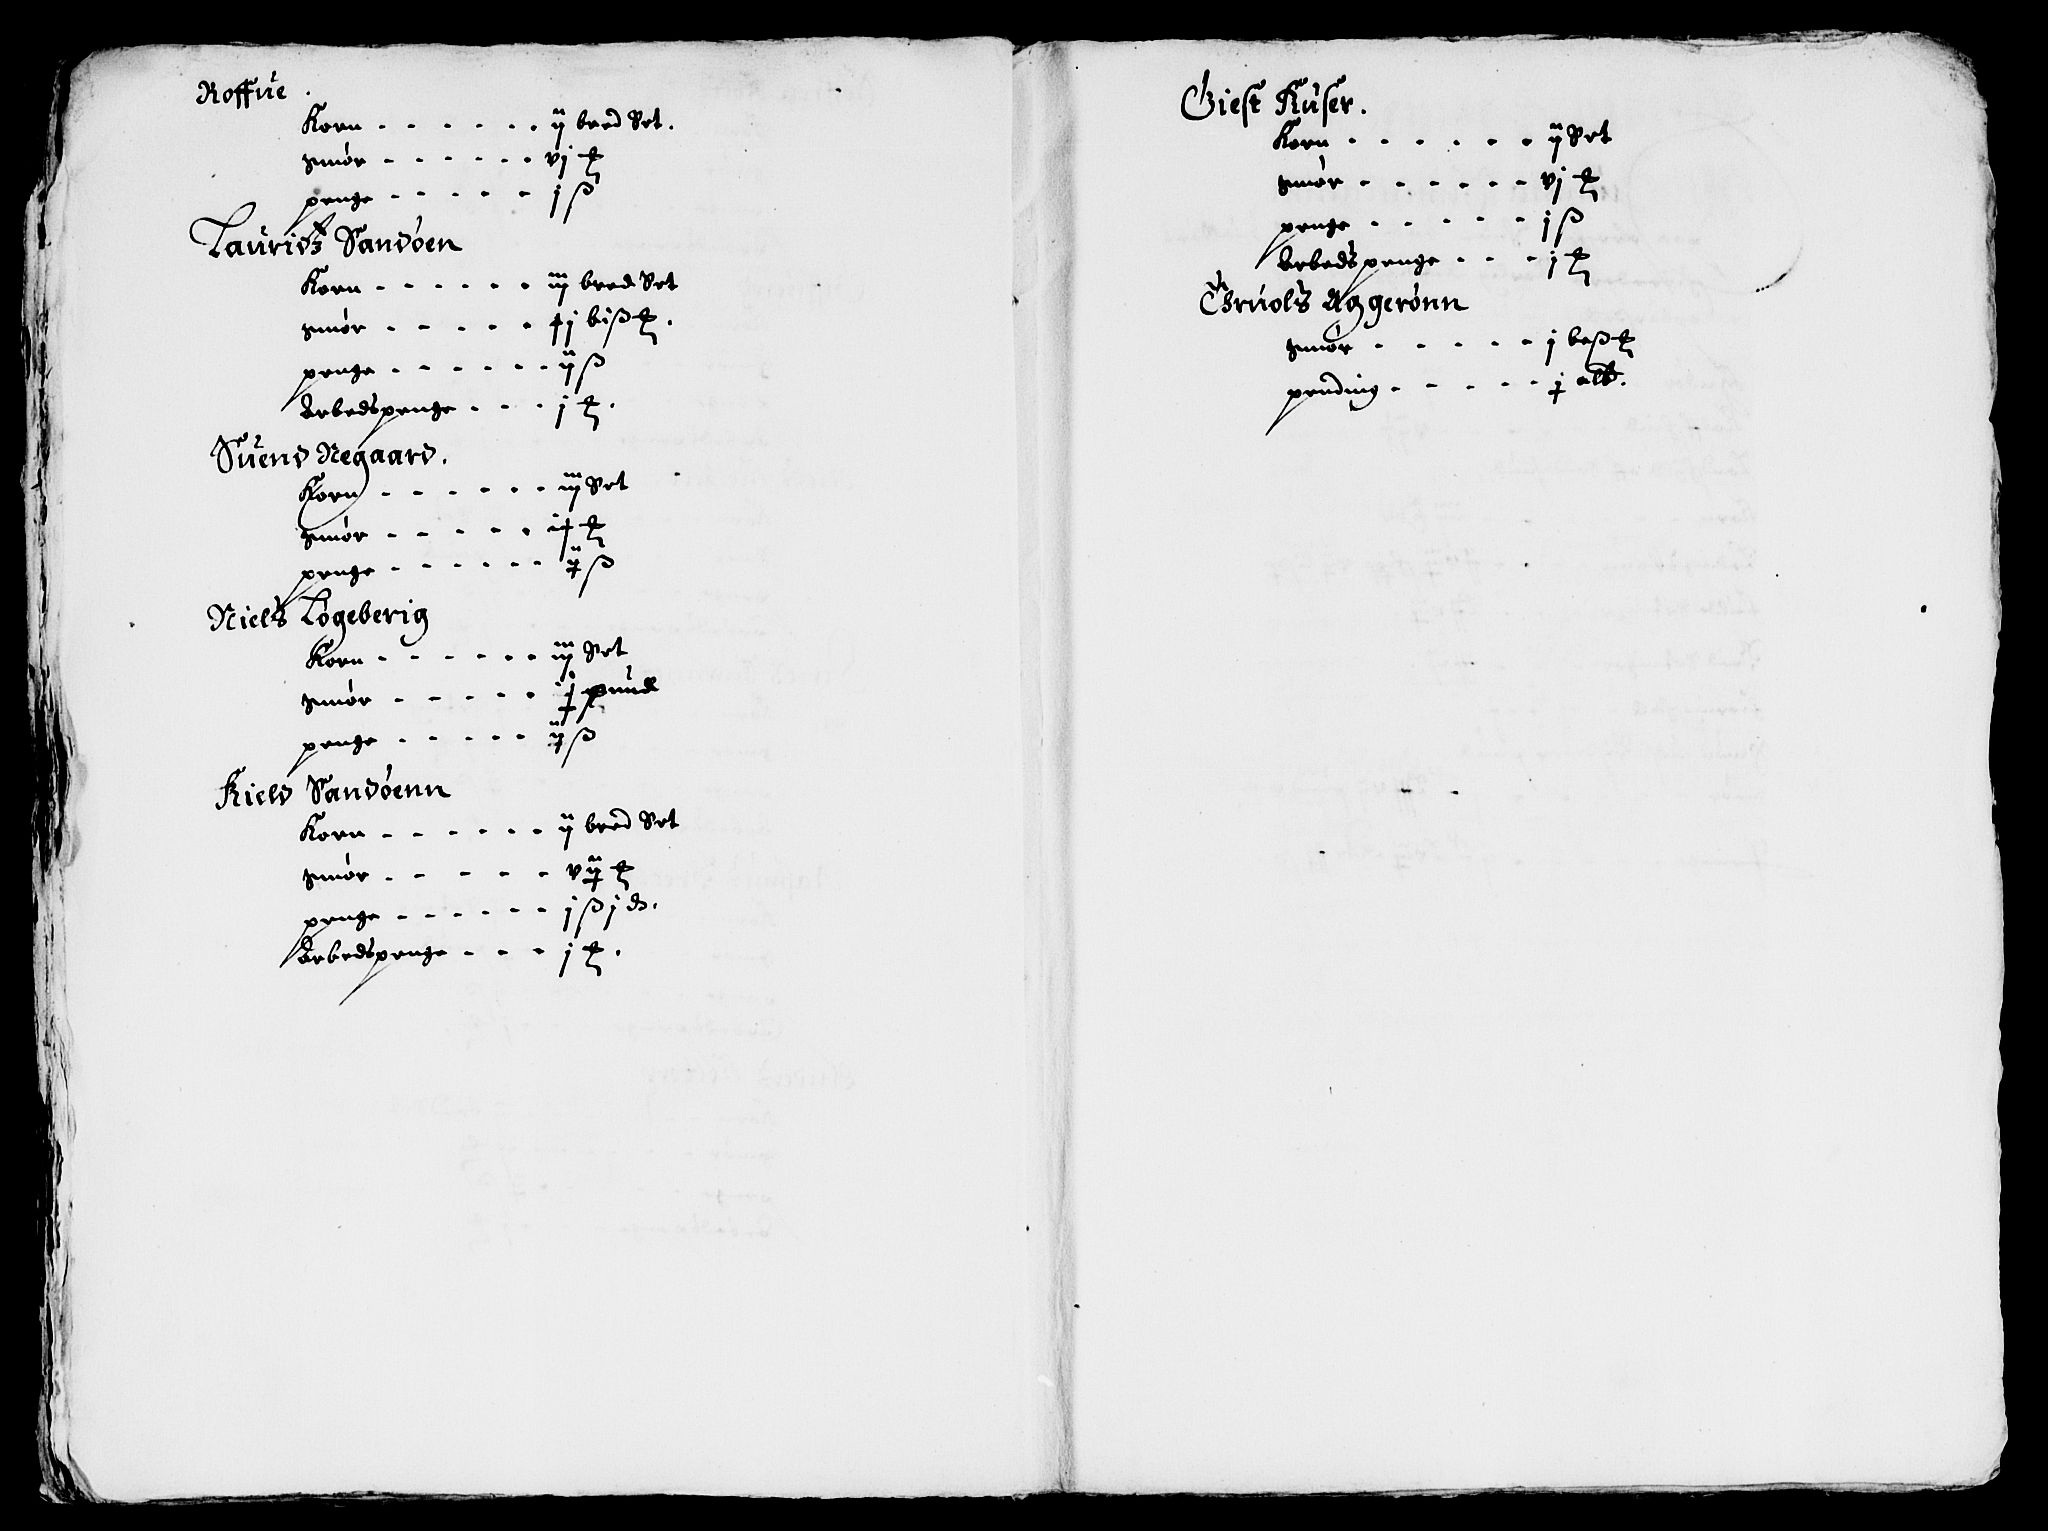 Roffue .
Korn - - - - - - ij bred Set.
Smør - - - - - vj ℔
penge - - - - - j ß
Lauridtz Sandøen
Korn - - - - - - iij bred Set
Smør - - - - - j biß ℔.
penge - - - - - - ij ß
Arbedspenge - - - j ℔.
Suend Negaard.
Korn - - - - - - iij Set
Smør - - - - - ℔
penge - - - - - - ß
Niels Løgeberig
Korn - - - - - - iij Set
Smør - - - - - pund
penge - - - - - ß
Kield Sandøenn
Korn - - - - - - ij bred Set
Smør - - - - - ℔
penge - - - - - - j ß j
Arbedspenge - - - j ℔.
Giest Kuser.
Korn - - - - - - ij Set
Smør - - - - - - vj ℔
penge - - - - - j ß
Arbedspenge - - - j ℔
Thruols Aggerønn
Smør - - - - - j beß ℔
pending - - - - - alb.